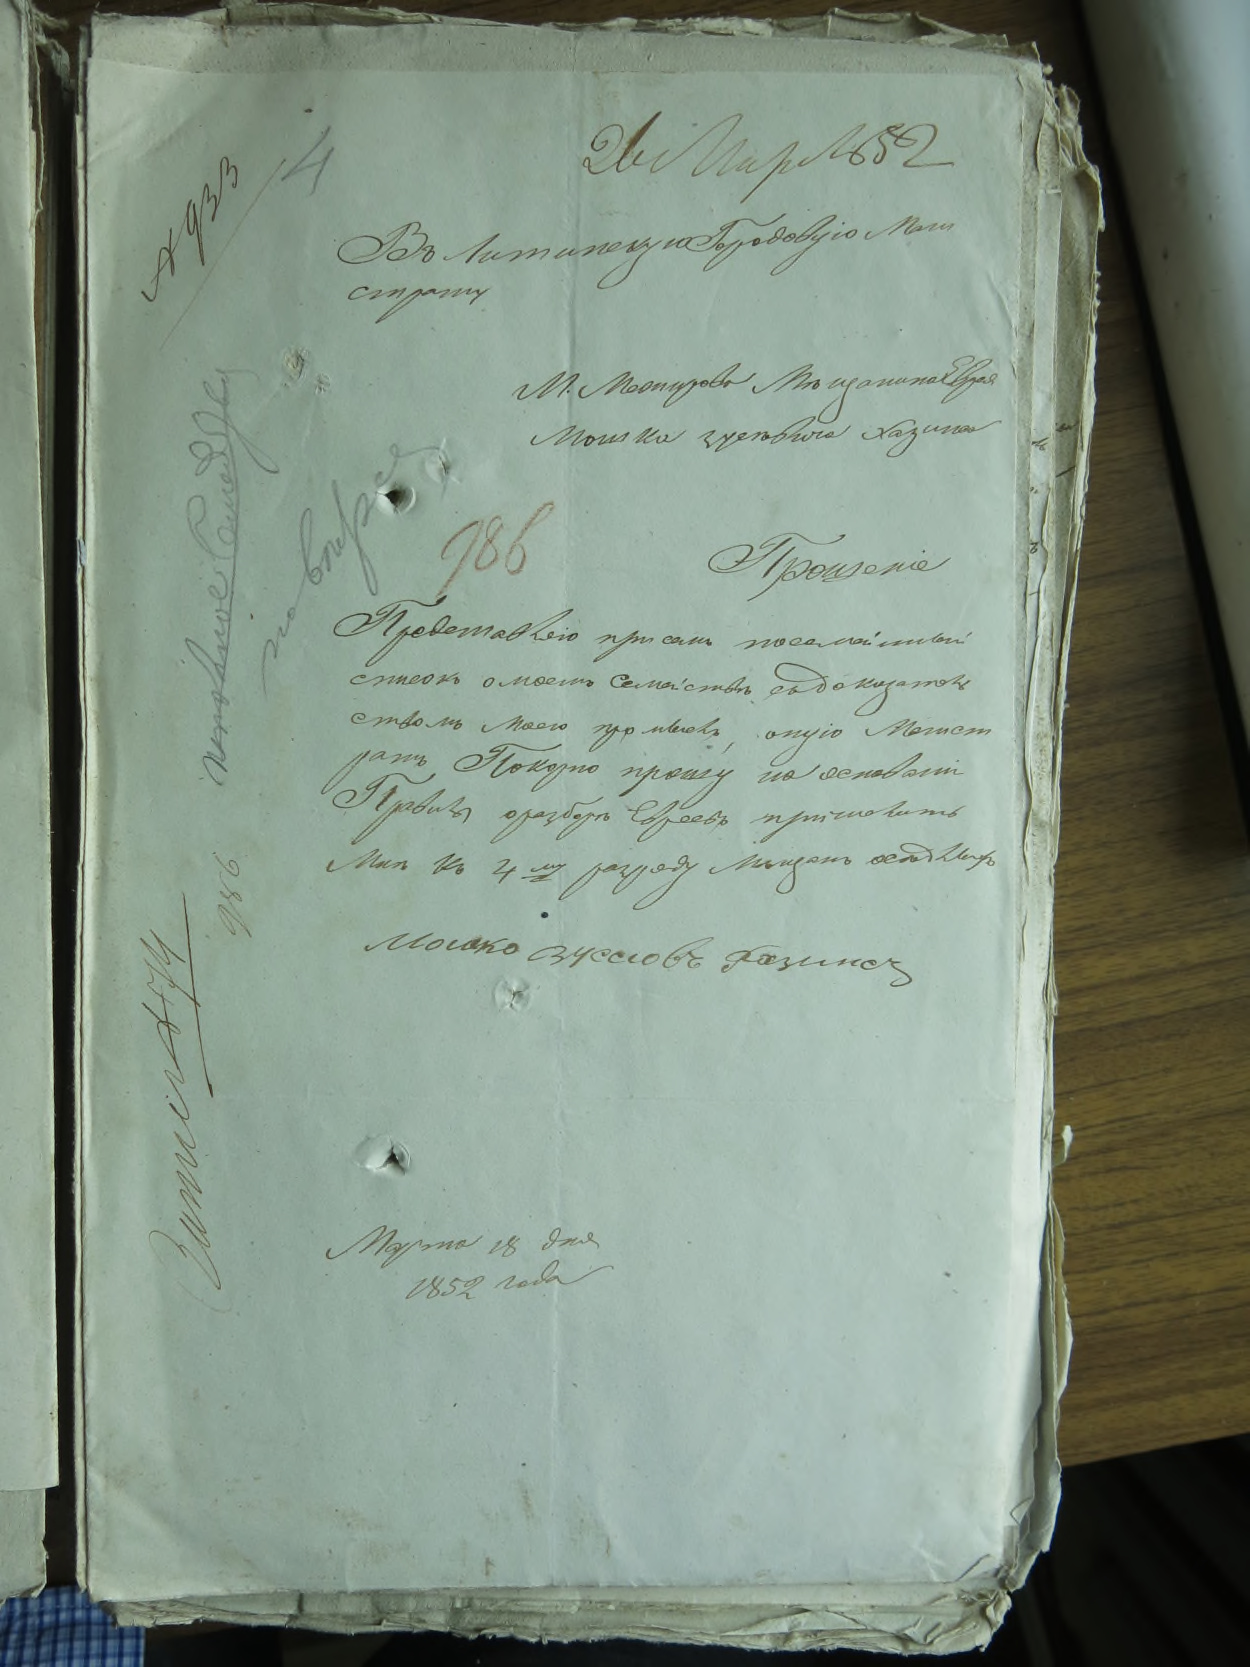 26 Мар 1852
№ 933
4
Въ Литинскую Городовую Маги
страту
М. Межирова Мещанина Еврея
Мошка Зуселевича Хазина
986
Прошеніе
Представляю при семъ посемейный
списокъ о моемъ Семействѣ съ доказатель
ствомъ моего промысла, оную Магист
ратъ Покорно прошу на основаніи
Правилъ о разборѣ Евреевъ причислить
Мине къ 4му разряду Мещанъ осѣдлыхъ
Мошко Зусеовъ Хазинъ
986
Марта 18 дня
1852 года